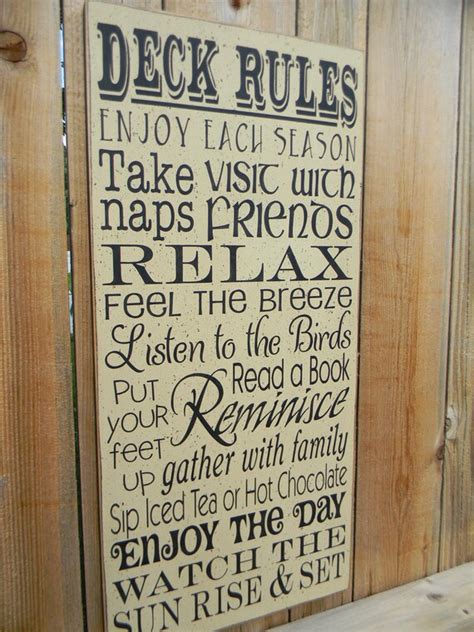 DECK RULES
ENJOY EACH SEASON
Take naps
VISIT WITH FRIENDS
RELAX
FEEL THE BREEZE
Listen to the Birds
PUT YOUR feet UP
Read a Book
Reminisce
gather with family
Sip Iced Tea or Hot Chocolate
ENJOY THE DAY
WATCH THE
SUN RISE & SET